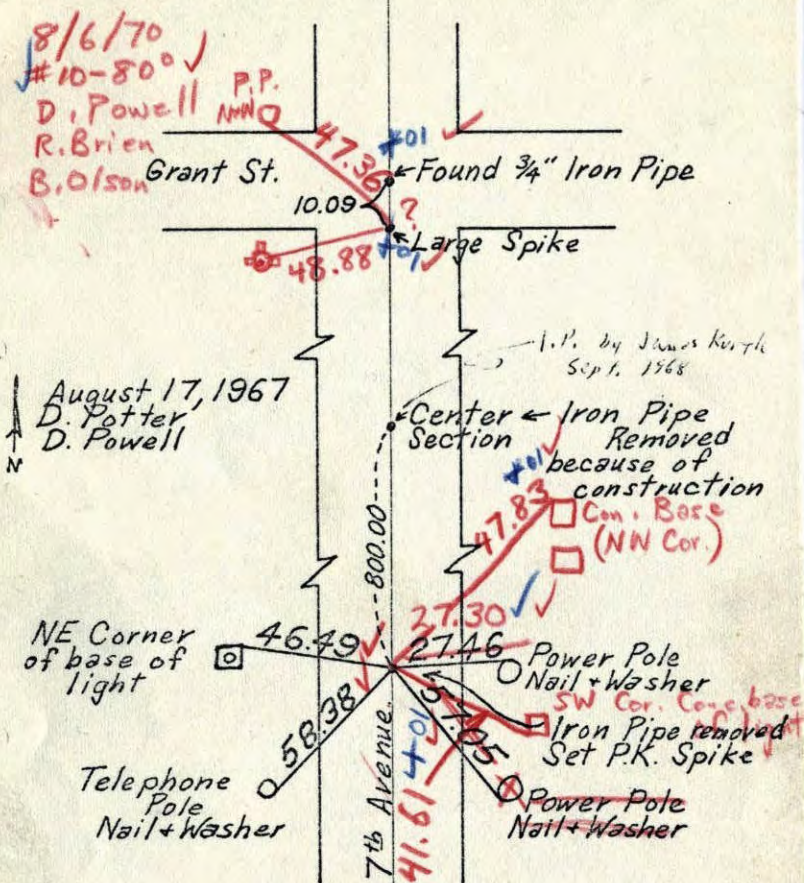 8/6/70
#10-80°
D. Powell
R. Brien
B. Olson
P.P.
N+W
47.36
+01
Grant St.
Found 3/4" Iron Pipe
10.09
?
Large Spike
48.88
+01
I.P. by James
Sept. 1968
August 17, 1967
D. Potter
D. Powell
N
Center Section
Iron Pipe
Removed
because of
construction
+01
47.83
Con. Base
(NW Cor.)
800.00
27.30
NE Corner
of base of
light
46.49
27.46
Power Pole
Nail + Washer
SW Cor. Conc. base
of light
58.38
57.05
Iron Pipe removed
Set P.K. Spike
Telephone
Pole
Nail + Washer
7th Avenue
41.61
+01
Power Pole
Nail + Washer